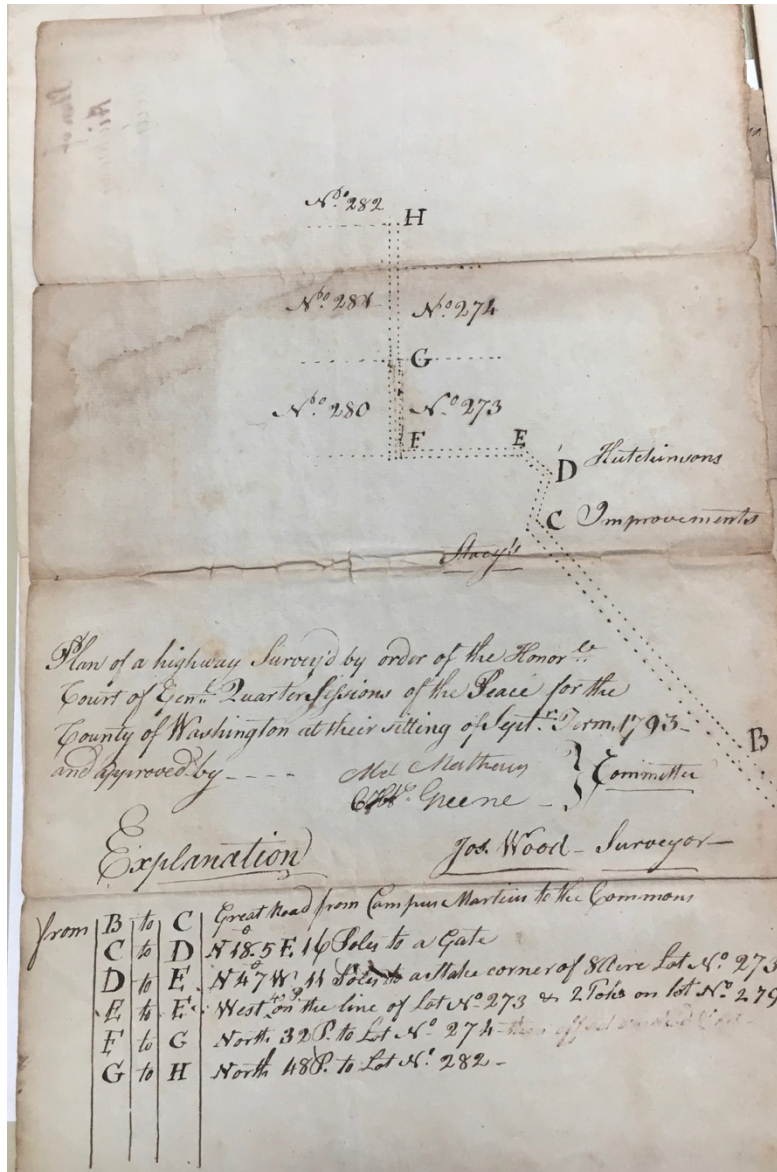 No. 282 H
No. 281 No. 274
G
No. 280 No. 273
F E
D Hutchinsons
C Improvements
Stacy's
Plan of a highway Survey'd by order of the Honorle
Court of Genl. Quarter Sessions of the Peace for the
County of Washington at their sitting of Septr. Term, 1793-
B
and approved by - - - - Mathews
Greene - } Committee
Explanation Jos. Wood - Surveyor -
from B to C Great Road from Campus Martius to the Commons
C to D N 18°.5 E. 16 Poles to a Gate
D to E N 47° W. 11 Poles to a Stake corner of 8 Acre Lot No. 273
E to F West on the line of Lot No. 273 & 2 on lot No. 279
F to G North 32 P. to Lot No. 274
G to H North 48 P. to Lot No. 282 -